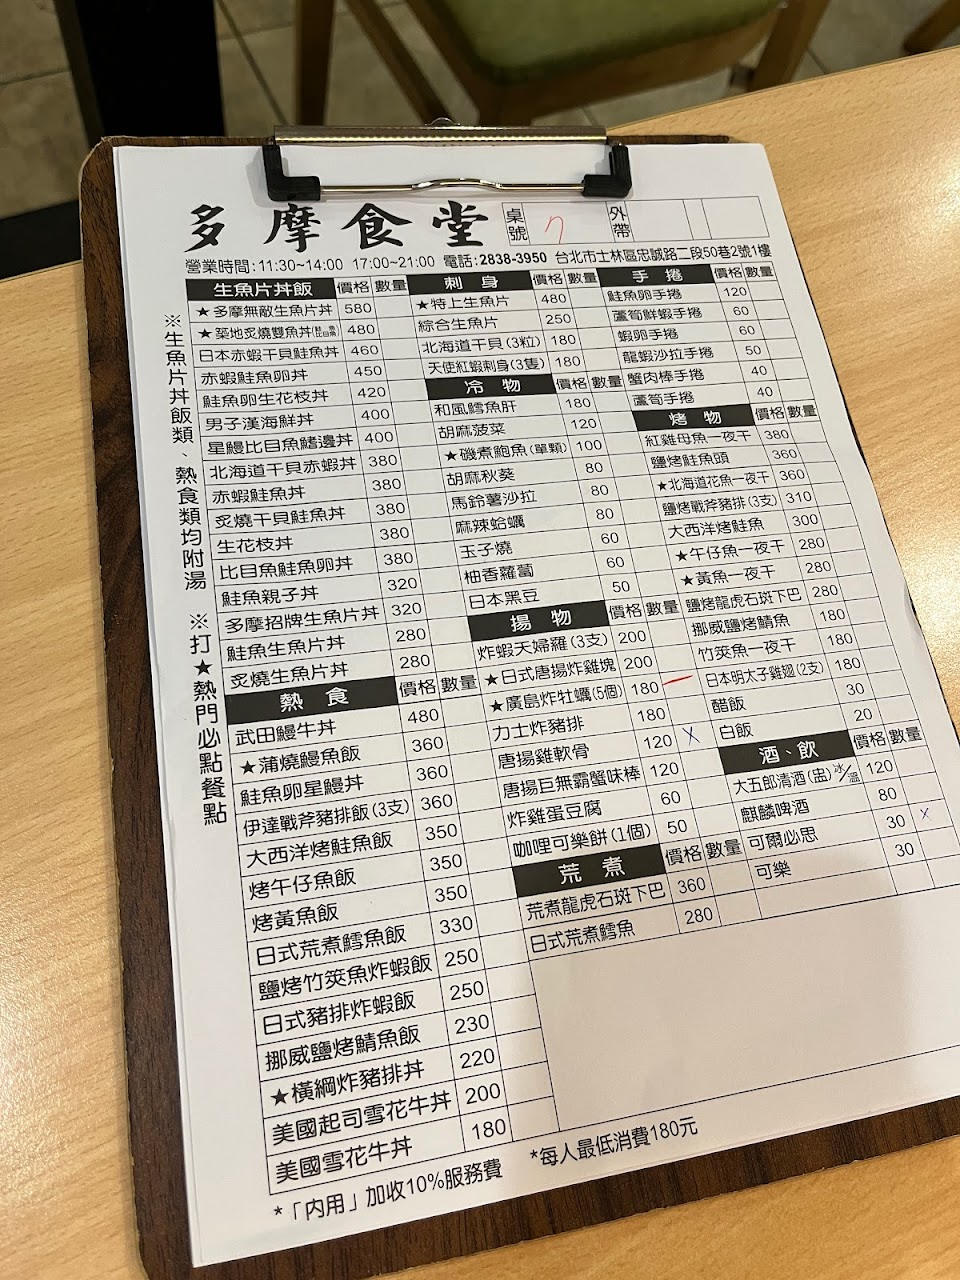 多摩食堂 桌號 7 外帶
營業時間:11:30~14:00 17:00~21:00 電話:2838-3950 台北市士林區忠誠路二段50巷2號1樓
※生魚片丼飯類、熱食類均附湯 ※打★熱門必點餐點
生魚片丼飯 價格 數量
★多摩無敵生魚片丼 580
★築地炙燒雙魚丼 480
日本赤蝦干貝鮭魚丼 460
赤蝦鮭魚卵丼 450
鮭魚卵生花枝丼 420
男子漢海鮮丼 400
星鰻比目魚鰭邊丼 400
北海道干貝赤蝦丼 380
赤蝦鮭魚丼 380
炙燒干貝鮭魚丼 380
生花枝丼 380
比目魚鮭魚卵丼 380
鮭魚親子丼 320
多摩招牌生魚片丼 320
鮭魚生魚片丼 280
炙燒生魚片丼 280
熱食 價格 數量
武田鰻牛丼 480
★蒲燒鰻魚飯 360
鮭魚卵星鰻丼 360
伊達戰斧豬排飯(3支) 360
大西洋烤鮭魚飯 350
烤午仔魚飯 350
烤黃魚飯 350
日式荒煮鱈魚飯 330
鹽烤竹筴魚炸蝦飯 250
日式豬排炸蝦飯 250
挪威鹽烤鯖魚飯 230
★橫綱炸豬排丼 220
美國起司雪花牛丼 200
美國雪花牛丼 180
刺身 價格 數量
★特上生魚片 480
綜合生魚片 250
北海道干貝(3粒) 180
天使紅蝦刺身(3隻) 180
冷物 價格 數量
和風鱈魚肝 180
胡麻菠菜 120
★磯煮鮑魚(單顆) 100
胡麻秋葵 80
馬鈴薯沙拉 80
麻辣蛤蠣 80
玉子燒 60
柚香蘿蔔 60
日本黑豆 50
揚物 價格 數量
炸蝦天婦羅(3支) 200
★日式唐揚炸雞塊 200
★廣島炸牡蠣(5個) 180
力士炸豬排 180
唐揚雞軟骨 120 X
唐揚巨無霸蟹味棒 120
炸雞蛋豆腐 60
咖哩可樂餅(1個) 50
荒煮 價格 數量
荒煮龍虎石斑下巴 360
日式荒煮鱈魚 280
手捲 價格 數量
鮭魚卵手捲 120
蘆筍鮮蝦手捲 60
蝦卵手捲 60
龍蝦沙拉手捲 50
蟹肉棒手捲 40
蘆筍手捲 40
烤物 價格 數量
紅雞母魚一夜干 380
鹽烤鮭魚頭 360
★北海道花魚一夜干 360
鹽烤戰斧豬排(3支) 310
大西洋烤鮭魚 300
★午仔魚一夜干 280
★黃魚一夜干 280
鹽烤龍虎石斑下巴 280
挪威鹽烤鯖魚 180
竹筴魚一夜干 180
日本明太子雞翅(2支) 180
醋飯 30
白飯 20
酒、飲 價格 數量
大五郎清酒(盅)冰/溫 120
麒麟啤酒 80
可爾必思 30 x
可樂 30
*「內用」加收10%服務費 *每人最低消費180元